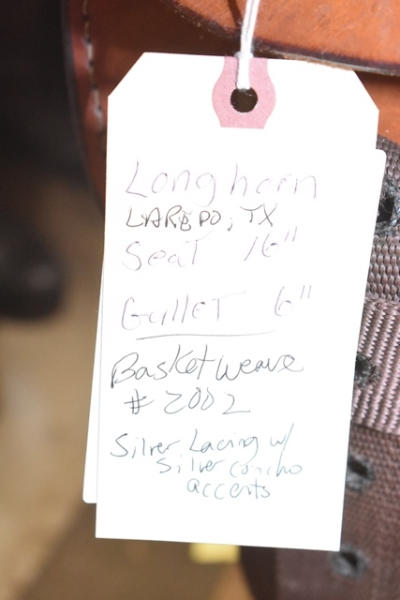 Longhorn
LAREDO, TX
Seat 16"
Gullet 6"
Basketweave
# 2002
Silver Lacing w/
Silver concho
accents